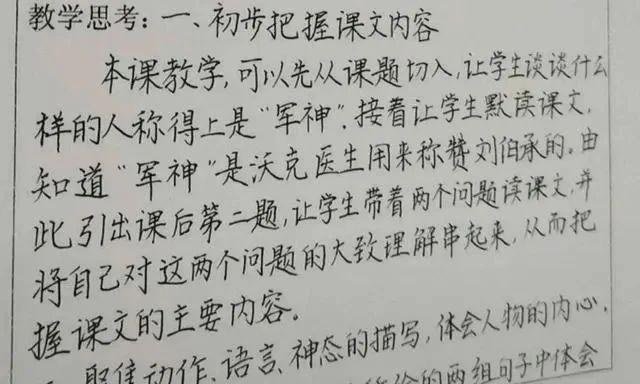 教学思考:一、初步把握课文内容
本课教学,可以先从课题切入,让学生谈谈什么
样的人称得上是“军神”。接着让学生默读课文,
知道“军神”是沃克医生用来称赞刘伯承的。由
此引出课后第二题,让学生带着两个问题读课文,并
将自己对这两个问题的大致理解串起来,从而把
握课文的主要内容。
聚焦动作、语言、神态的描写,体会人物的内心。
的两组句子中体会